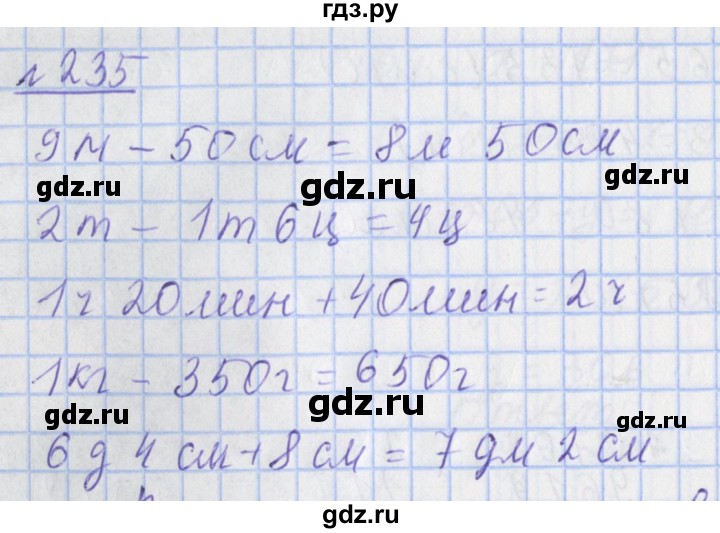 гдз.ру
№ 235
9м - 50 см = 8м 50см
gdz.ru
gdz.ru
gdz.ru
2т - 1т 6ц = 4ц
1ч 20мин + 40мин = 2ч
1кг - 350г = 650г
gdz.ru
gdz.ru
gdz.ru
6д 4см + 8см = 7дм 2см
gdz.ru